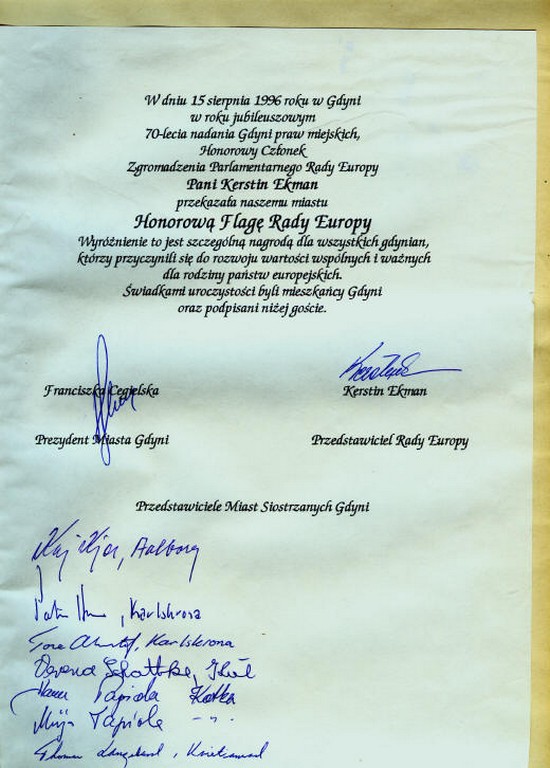 W dniu 15 sierpnia 1996 roku w Gdyni
w roku jubileuszowym
70-lecia nadania Gdyni praw miejskich,
Honorowy Członek
Zgromadzenia Parlamentarnego Rady Europy
Pani Kerstin Ekman
przekazała naszemu miastu
Honorową Flagę Rady Europy
Wyróżnienie to jest szczególną nagrodą dla wszystkich gdynian,
którzy przyczynili się do rozwoju wartości wspólnych i ważnych
dla rodziny państw europejskich.
Świadkami uroczystości byli mieszkańcy Gdyni
oraz podpisani niżej goście.
Franciszka Cegielska
Kerstin Ekman
Prezydent Miasta Gdyni
Przedstawiciel Rady Europy
Przedstawiciele Miast Siostrzanych Gdyni
Aalborg
, Karlskrona
, Karlskrona
Kiel
Tapiola Kotka
Tapiola - " -
Thomas